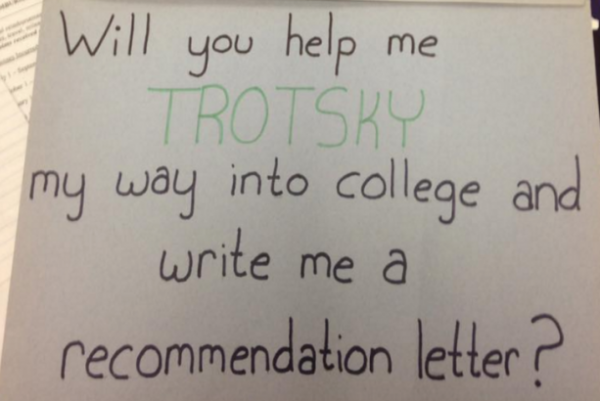 Will you help me
TROTSKY
my way into college and
write me a
recommendation letter?